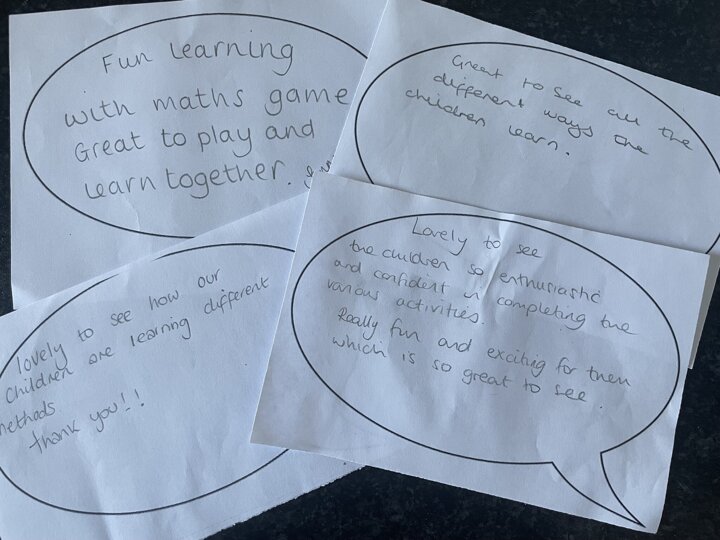 Fun learning
with maths game
Great to play and
learn together.
Great to see all the
different ways the
children learn.
lovely to see how our
children are learning different
methods
thank you!!
Lovely to see
the children so enthusiastic
and confident in completing the
various activities.
Really fun and exciting for them
which is so great to see.